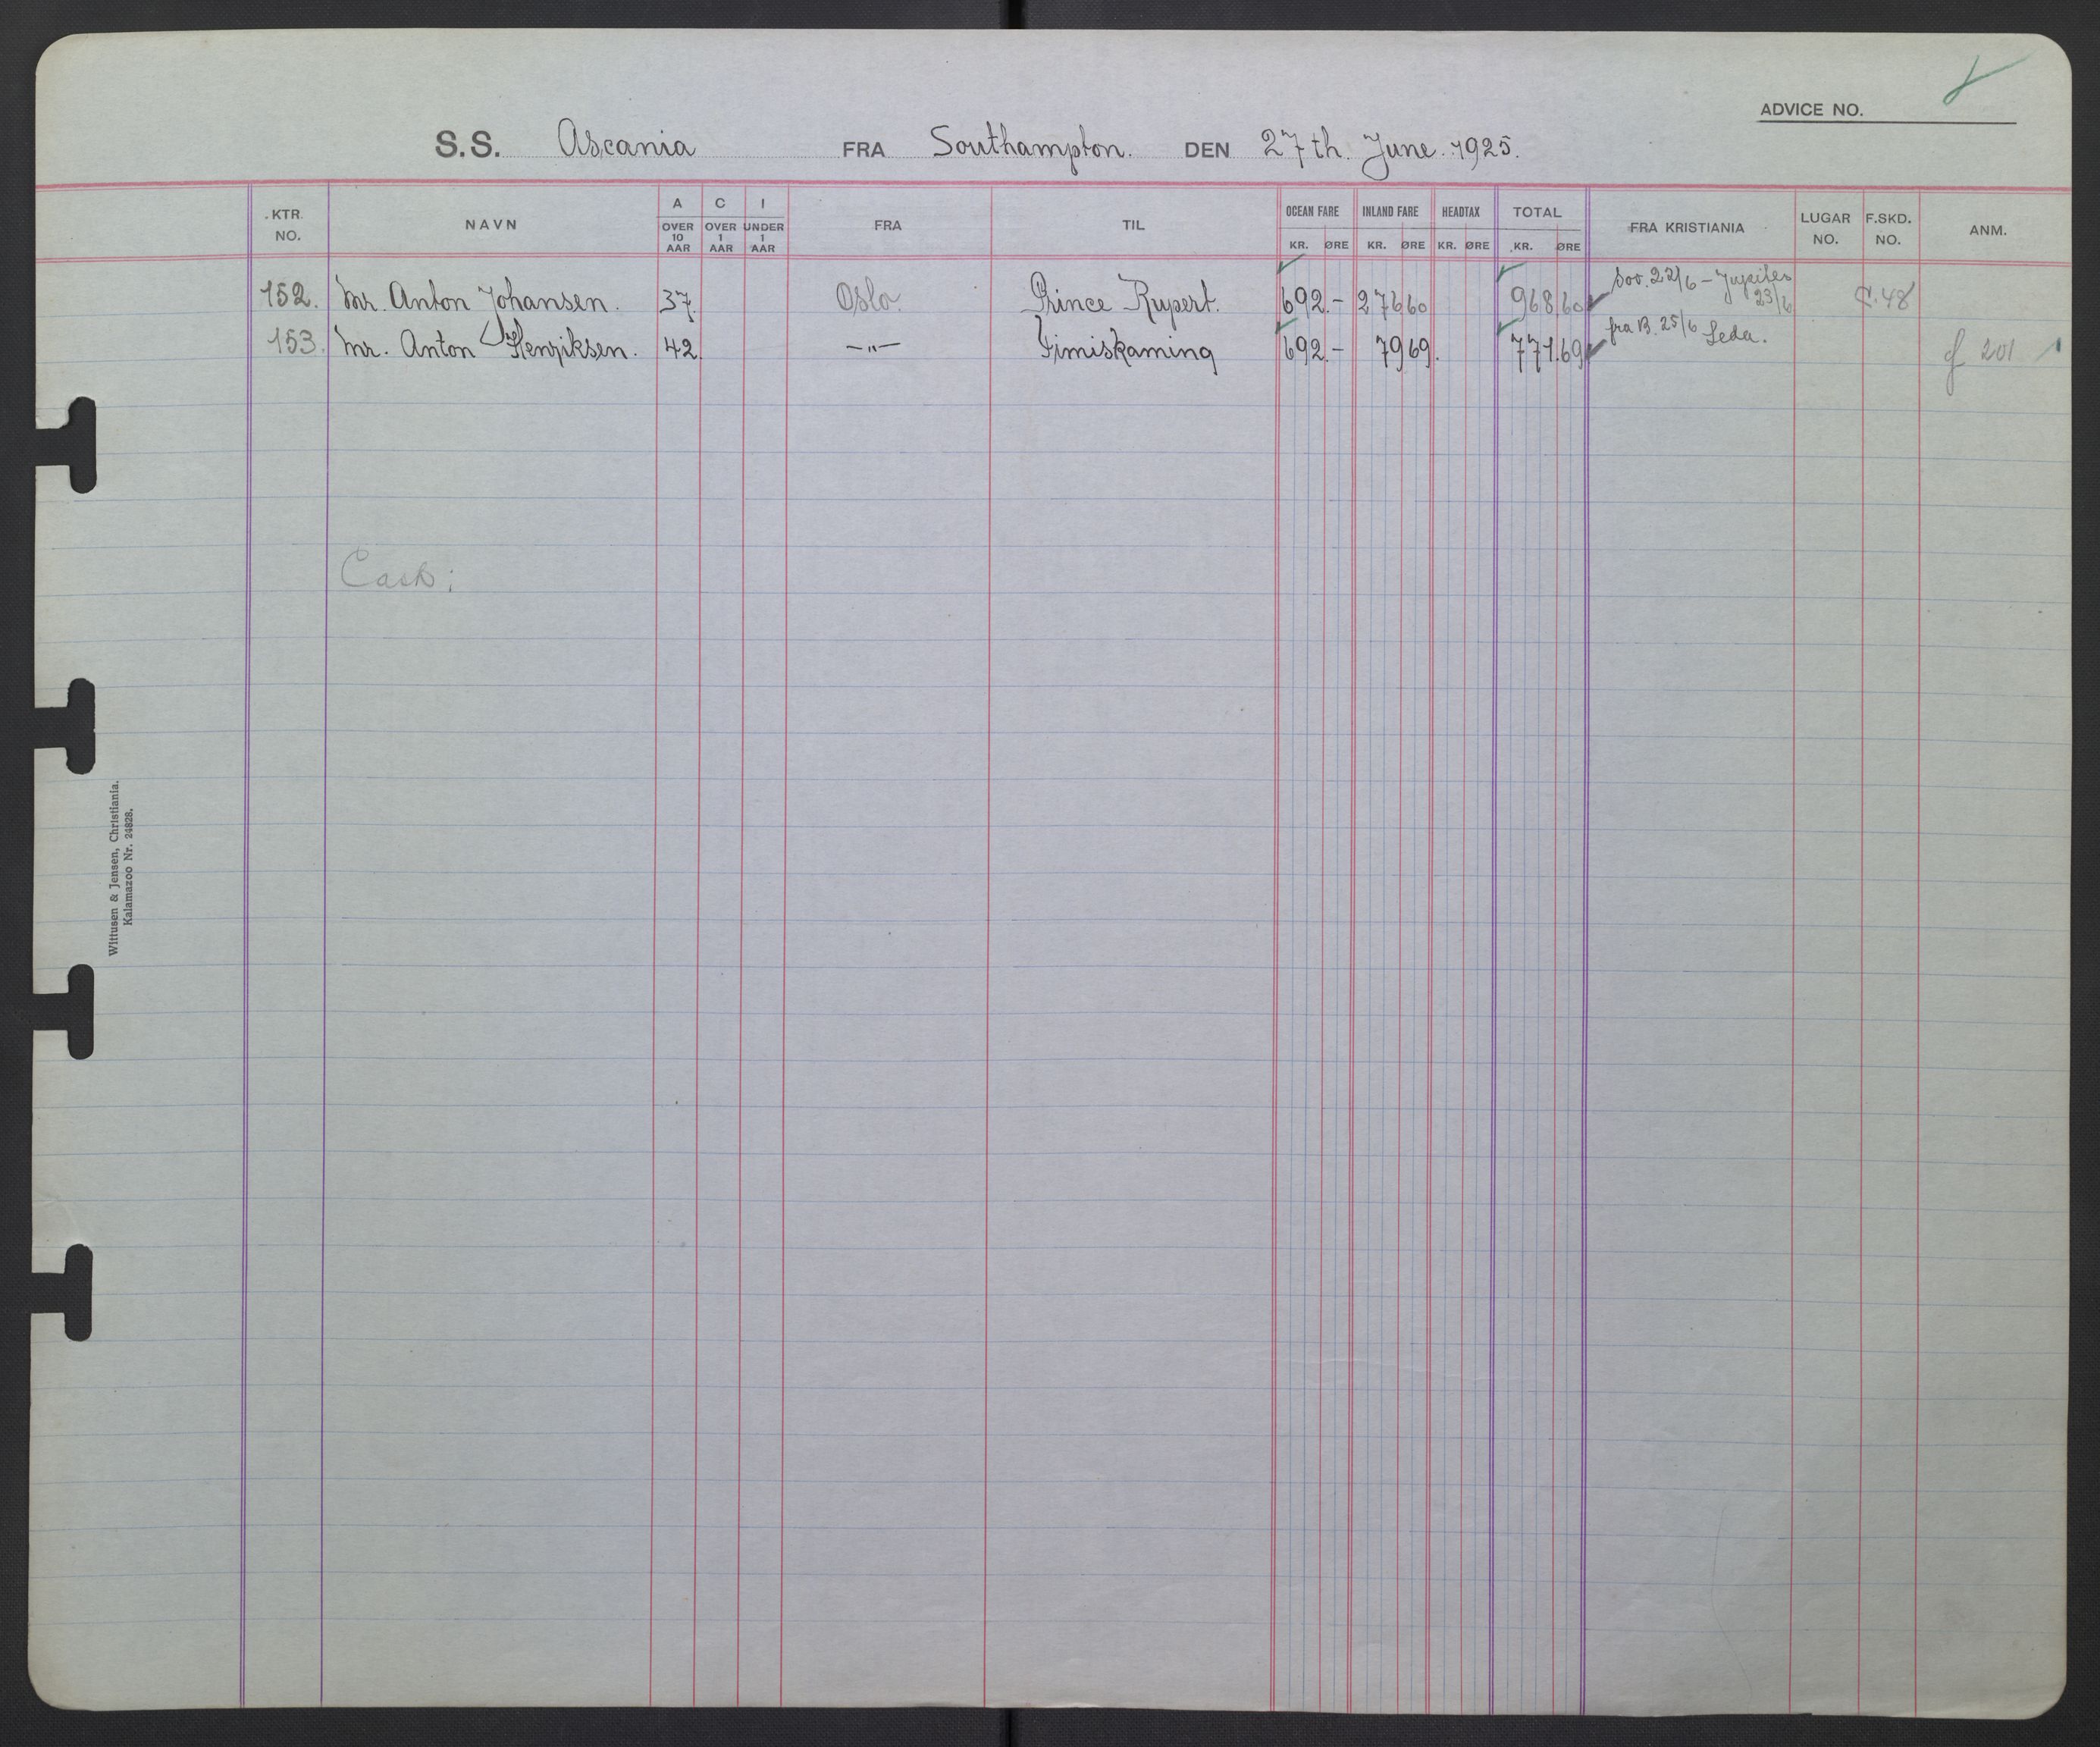 ADVICE NO.
S.S. Ascania FRA Southampton. DEN 27th. June. 1925.
KTR. NO. NAVN A OVER 10 AAR C OVER 1 AAR I UNDER 1 AAR FRA TIL OCEAN FARE KR. ØRE INLAND FARE KR. ØRE HEADTAX KR. ØRE TOTAL KR. ØRE FRA KRISTIANIA LUGAR NO. F.SKD. NO. ANM.
152. Mr. Anton Johansen. 37. Oslo. Prince Rupert. 692.- 276 60 968.60 22/6 - Jupiter 23/6 48
153. Mr. Anton Henriksen. 42. -"- Timiskaming 692.- 79 69. 771.69 fra B. 25/6 Leda. 201
Cash:
Wittusen & Jensen, Christiania.
Kalamazoo Nr. 24828.